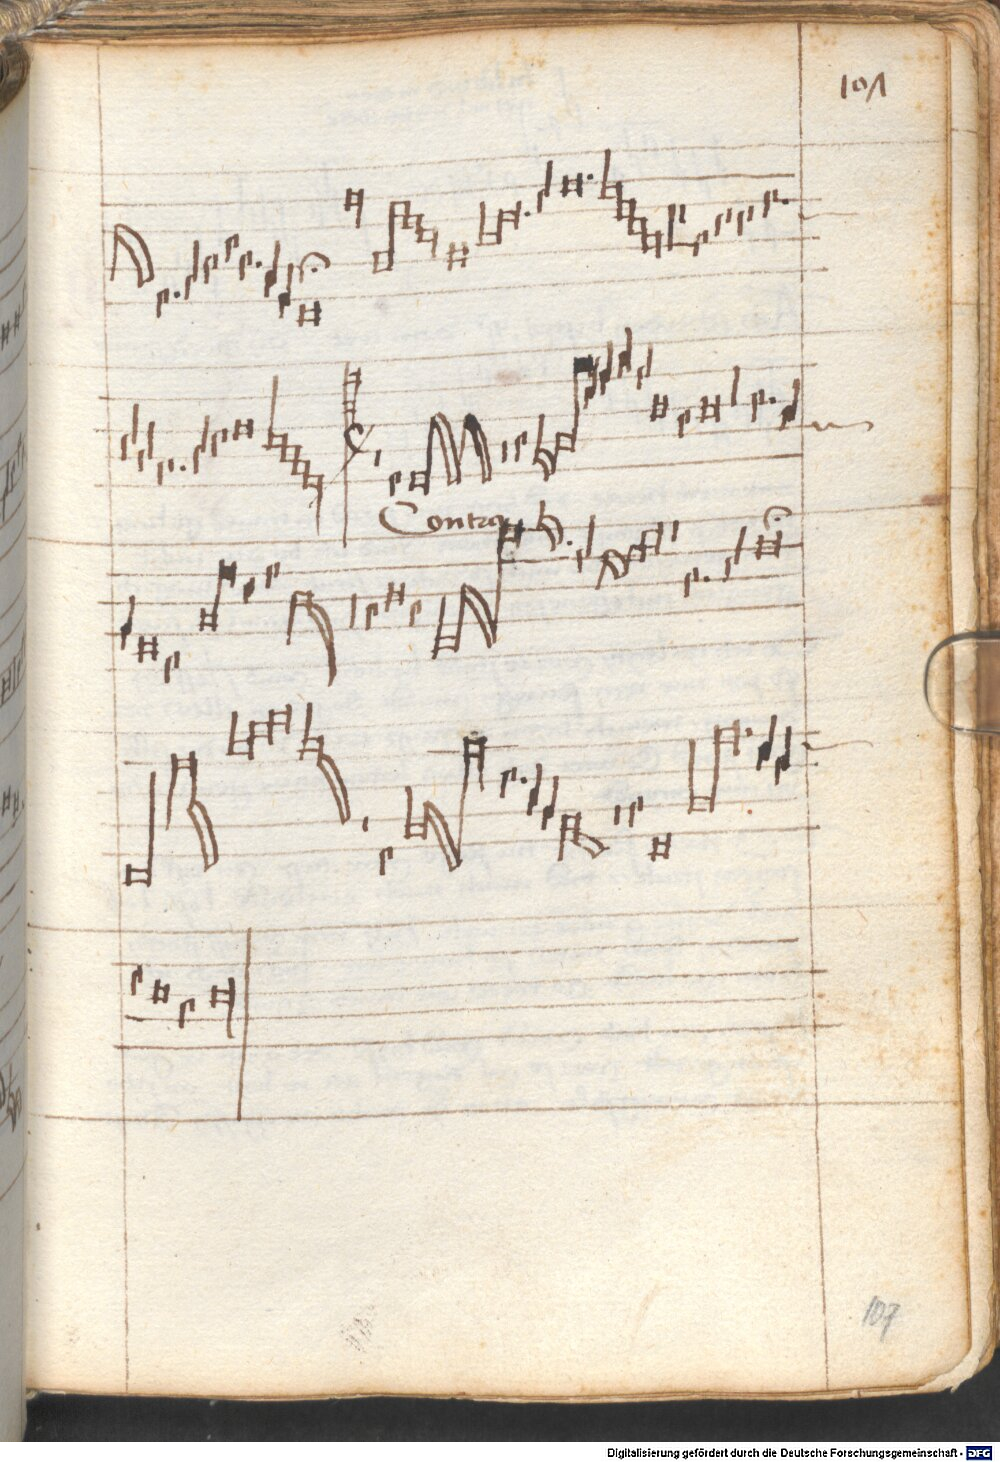 101
Contra
107
Digitalisierung gefördert durch die Deutsche Forschungsgemeinschaft - DFG